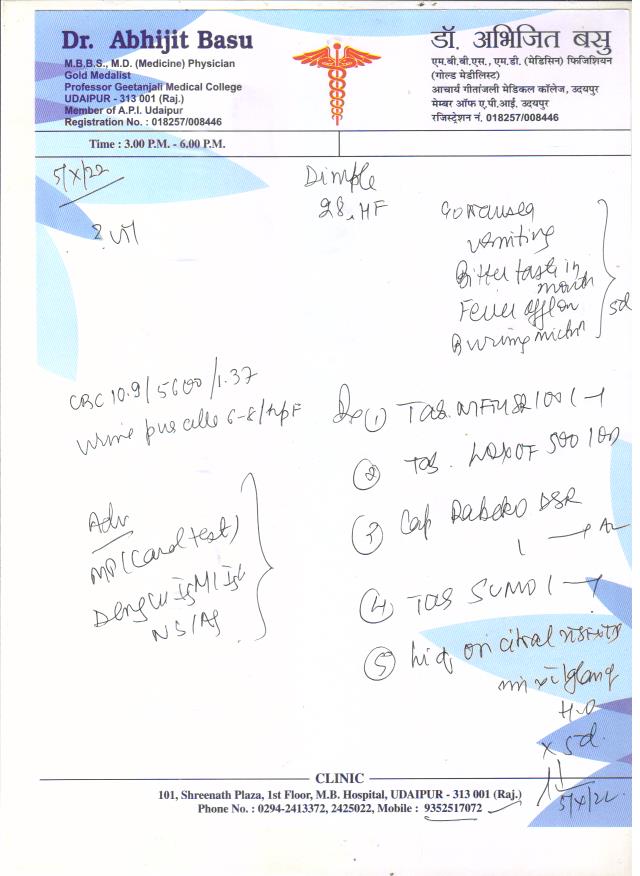 Dr. Abhijit Basu
M.B.B.S., M.D. (Medicine) Physician
Gold Medalist
Professor Geetanjali Medical College
UDAIPUR - 313 001 (Raj.)
Member of A.P.I. Udaipur
Registration No. : 018257/008446
डॉ. अभिजित बसु
एम.बी.बी.एस., एम.डी. (मेडिसिन) फिजिशियन
(गोल्ड मेडीलिस्ट)
आचार्य गीतांजली मेडिकल कॉलेज, उदयपुर
मेम्बर ऑफ ए.पी.आई. उदयपुर
रजिस्ट्रेशन नं. 018257/008446
Time : 3.00 P.M. - 6.00 P.M.
5/X/22
Dimple
28, HF
? UTI
Nausea
Vomiting
Bitter taste in
mouth
Fever off/on
Burning
5d
CBC 10.9/5600/1.37
Urine pus cells 6-8/hpF
Adv
MP (Card test)
Dengue IgM/IgG
NS1Ag
Rx (1) Tab. 100 1-1
(2) Tab. 500 100
(3) Cap Rabeko DSR
1
(4) Tab SUMO 1-1
(5) Liq on citral
glass
H2O
x 5d.
5/X/22
CLINIC
101, Shreenath Plaza, 1st Floor, M.B. Hospital, UDAIPUR - 313 001 (Raj.)
Phone No. : 0294-2413372, 2425022, Mobile : 9352517072